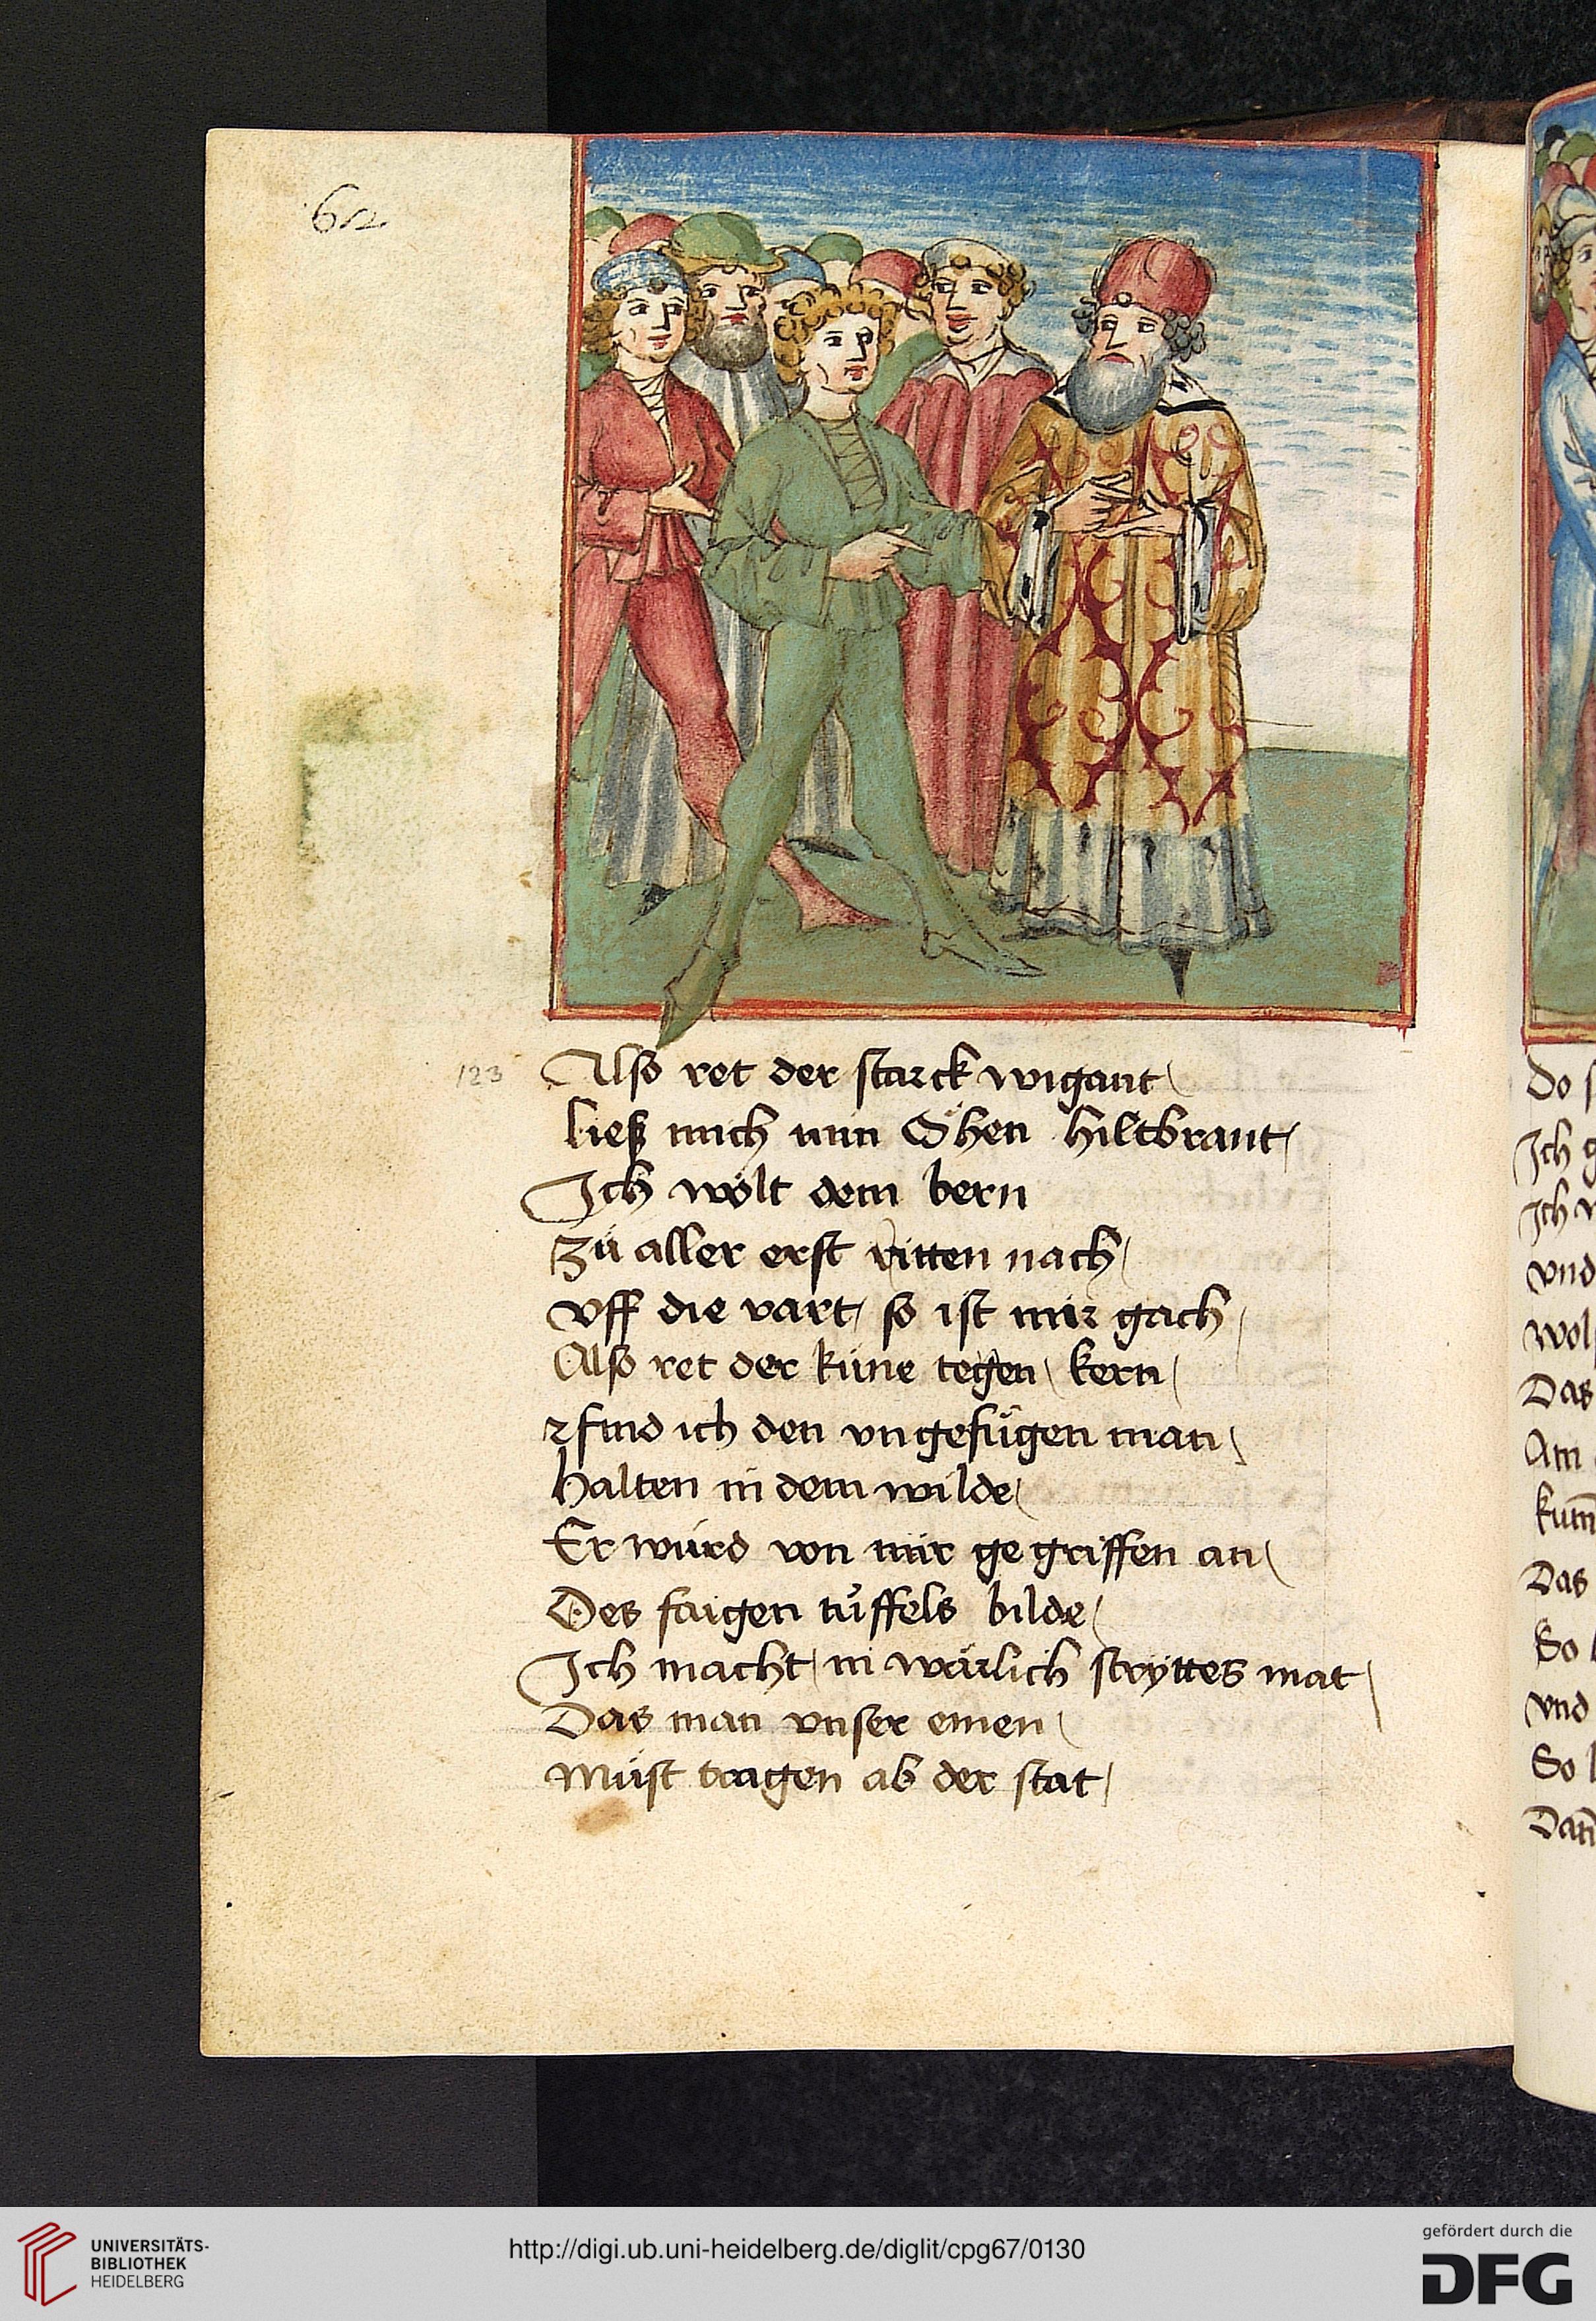 62
123
Also ret der starck wigant
ließ mich min Öhen hiltbrant
Ich wölt dem bern
Zü aller erst ritten nach
vff die vart so ist mir gach
Also ret der küne tegen kern
find ich den vngefügen man
halten in dem wilde
Er würd von mir ge griffen an
Des faigen tüffels bilde
Ich macht in wärlich stryttes mat
Das man vnser einen
Müist tragen ab der stat
Do
Ich
Ich
vnd
Das
Am
Das
So
vnd
So
UNIVERSITÄTS-
BIBLIOTHEK
HEIDELBERG
http://digi.ub.uni-heidelberg.de/diglit/cpg67/0130
gefördert durch die
DFG